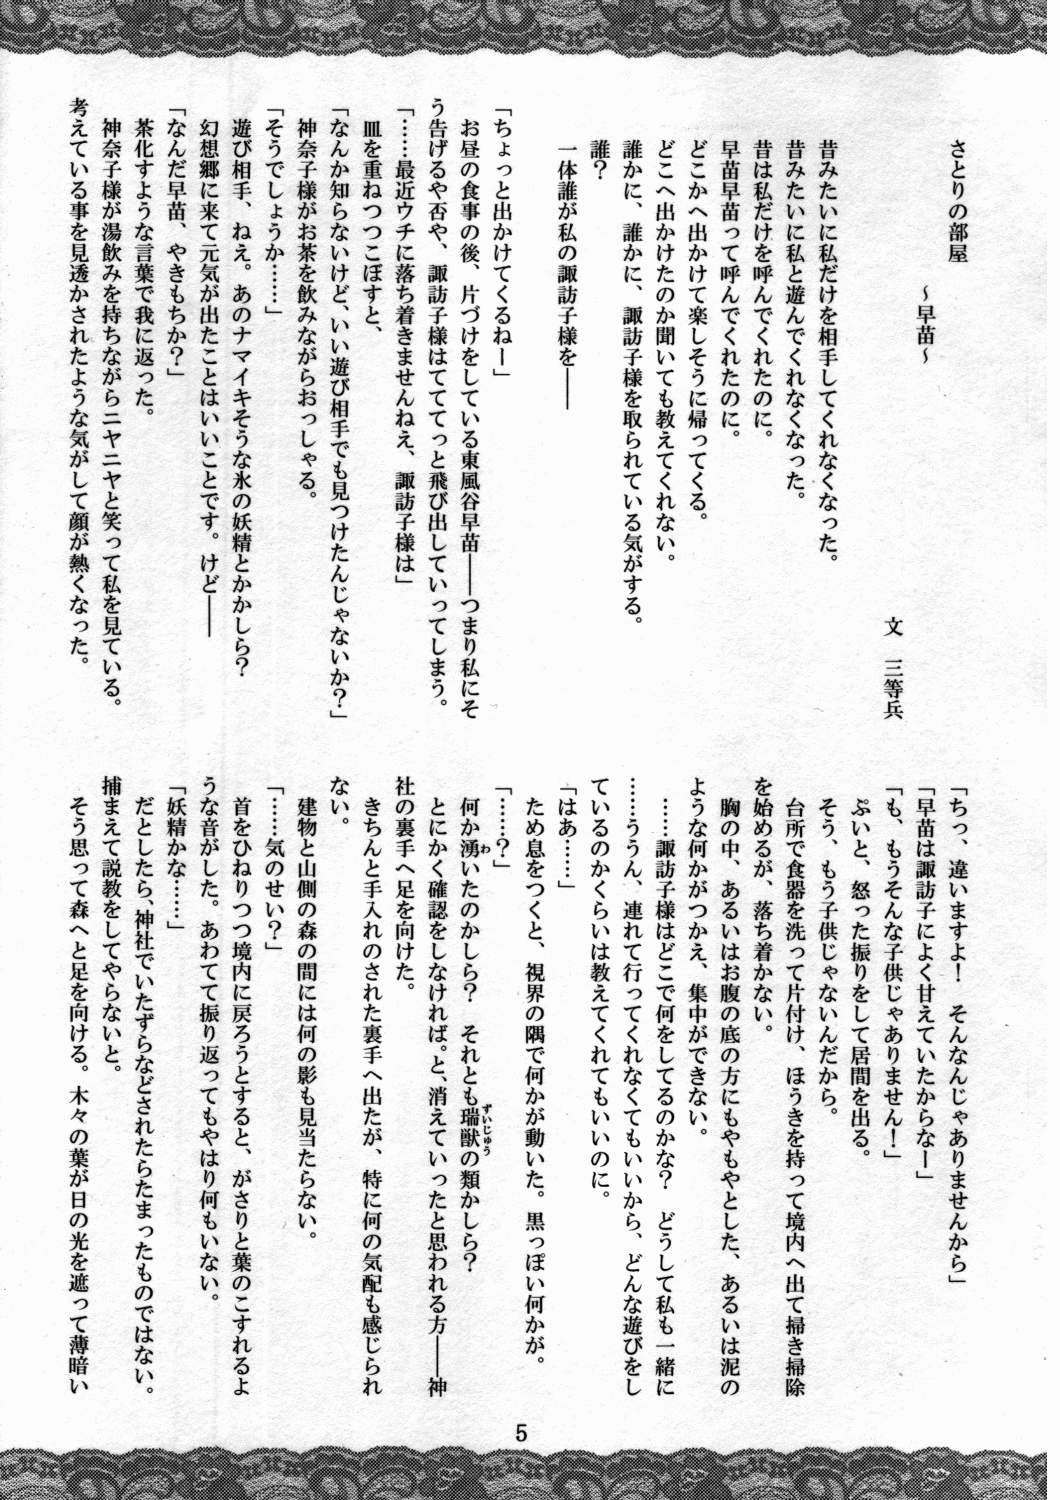 さとりの部屋
～早苗～
文　三等兵
昔みたいに私だけを相手してくれなくなった。
昔みたいに私と遊んでくれなくなった。
昔は私だけを呼んでくれたのに。
早苗早苗って呼んでくれたのに。
どこかへ出かけて楽しそうに帰ってくる。
どこへ出かけたのか聞いても教えてくれない。
誰かに、誰かに、諏訪子様を取られている気がする。
誰？
一体誰が私の諏訪子様を――
「ちょっと出かけてくるねー」
お昼の食事の後、片づけをしている東風谷早苗――つまり私にそ
う告げるや否や、諏訪子様はてててっと飛び出していってしまう。
「……最近ウチに落ち着きませんねえ、諏訪子様は」
皿を重ねつつこぼすと、
「なんか知らないけど、いい遊び相手でも見つけたんじゃないか？」
神奈子様がお茶を飲みながらおっしゃる。
「そうでしょうか……」
遊び相手、ねえ。あのナマイキそうな氷の妖精とかかしら？
幻想郷に来て元気が出たことはいいことです。けど――
「なんだ早苗、やきもちか？」
茶化すような言葉で我に返った。
神奈子様が湯飲みを持ちながらニヤニヤと笑って私を見ている。
考えている事を見透かされたような気がして顔が熱くなった。
「ちっ、違いますよ！　そんなんじゃありませんから」
「早苗は諏訪子によく甘えていたからなー」
「も、もうそんな子供じゃありません！」
ぷいと、怒った振りをして居間を出る。
そう、もう子供じゃないんだから。
台所で食器を洗って片付け、ほうきを持って境内へ出て掃き掃除
を始めるが、落ち着かない。
胸の中、あるいはお腹の底の方にもやもやとした、あるいは泥の
ような何かがつかえ、集中ができない。
……諏訪子様はどこで何をしてるのかな？　どうして私も一緒に
……ううん、連れて行ってくれなくてもいいから、どんな遊びをし
ているのかくらいは教えてくれてもいいのに。
「はあ……」
ため息をつくと、視界の隅で何かが動いた。黒っぽい何かが。
「……？」
何か湧いたのかしら？　それとも瑞獣の類かしら？
とにかく確認をしなければ。と、消えていったと思われる方――神
社の裏手へ足を向けた。
きちんと手入れのされた裏手へ出たが、特に何の気配も感じられ
ない。
建物と山側の森の間には何の影も見当たらない。
「……気のせい？」
首をひねりつつ境内に戻ろうとすると、がさりと葉のこすれるよ
うな音がした。あわてて振り返ってもやはり何もいない。
「妖精かな……」
だとしたら、神社でいたずらなどされたらたまったものではない。
捕まえて説教をしてやらないと。
そう思って森へと足を向ける。木々の葉が日の光を遮って薄暗い
わ
ずいじゅう
5